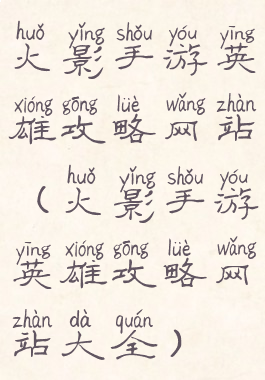 huǒ yǐng shǒu yóu yīng
火影手游英
xióng gōng lüè wǎng zhàn
雄攻略网站
huǒ yǐng shǒu yóu
（火影手游
yīng xióng gōng lüè wǎng
英雄攻略网
zhàn dà quán
站大全）